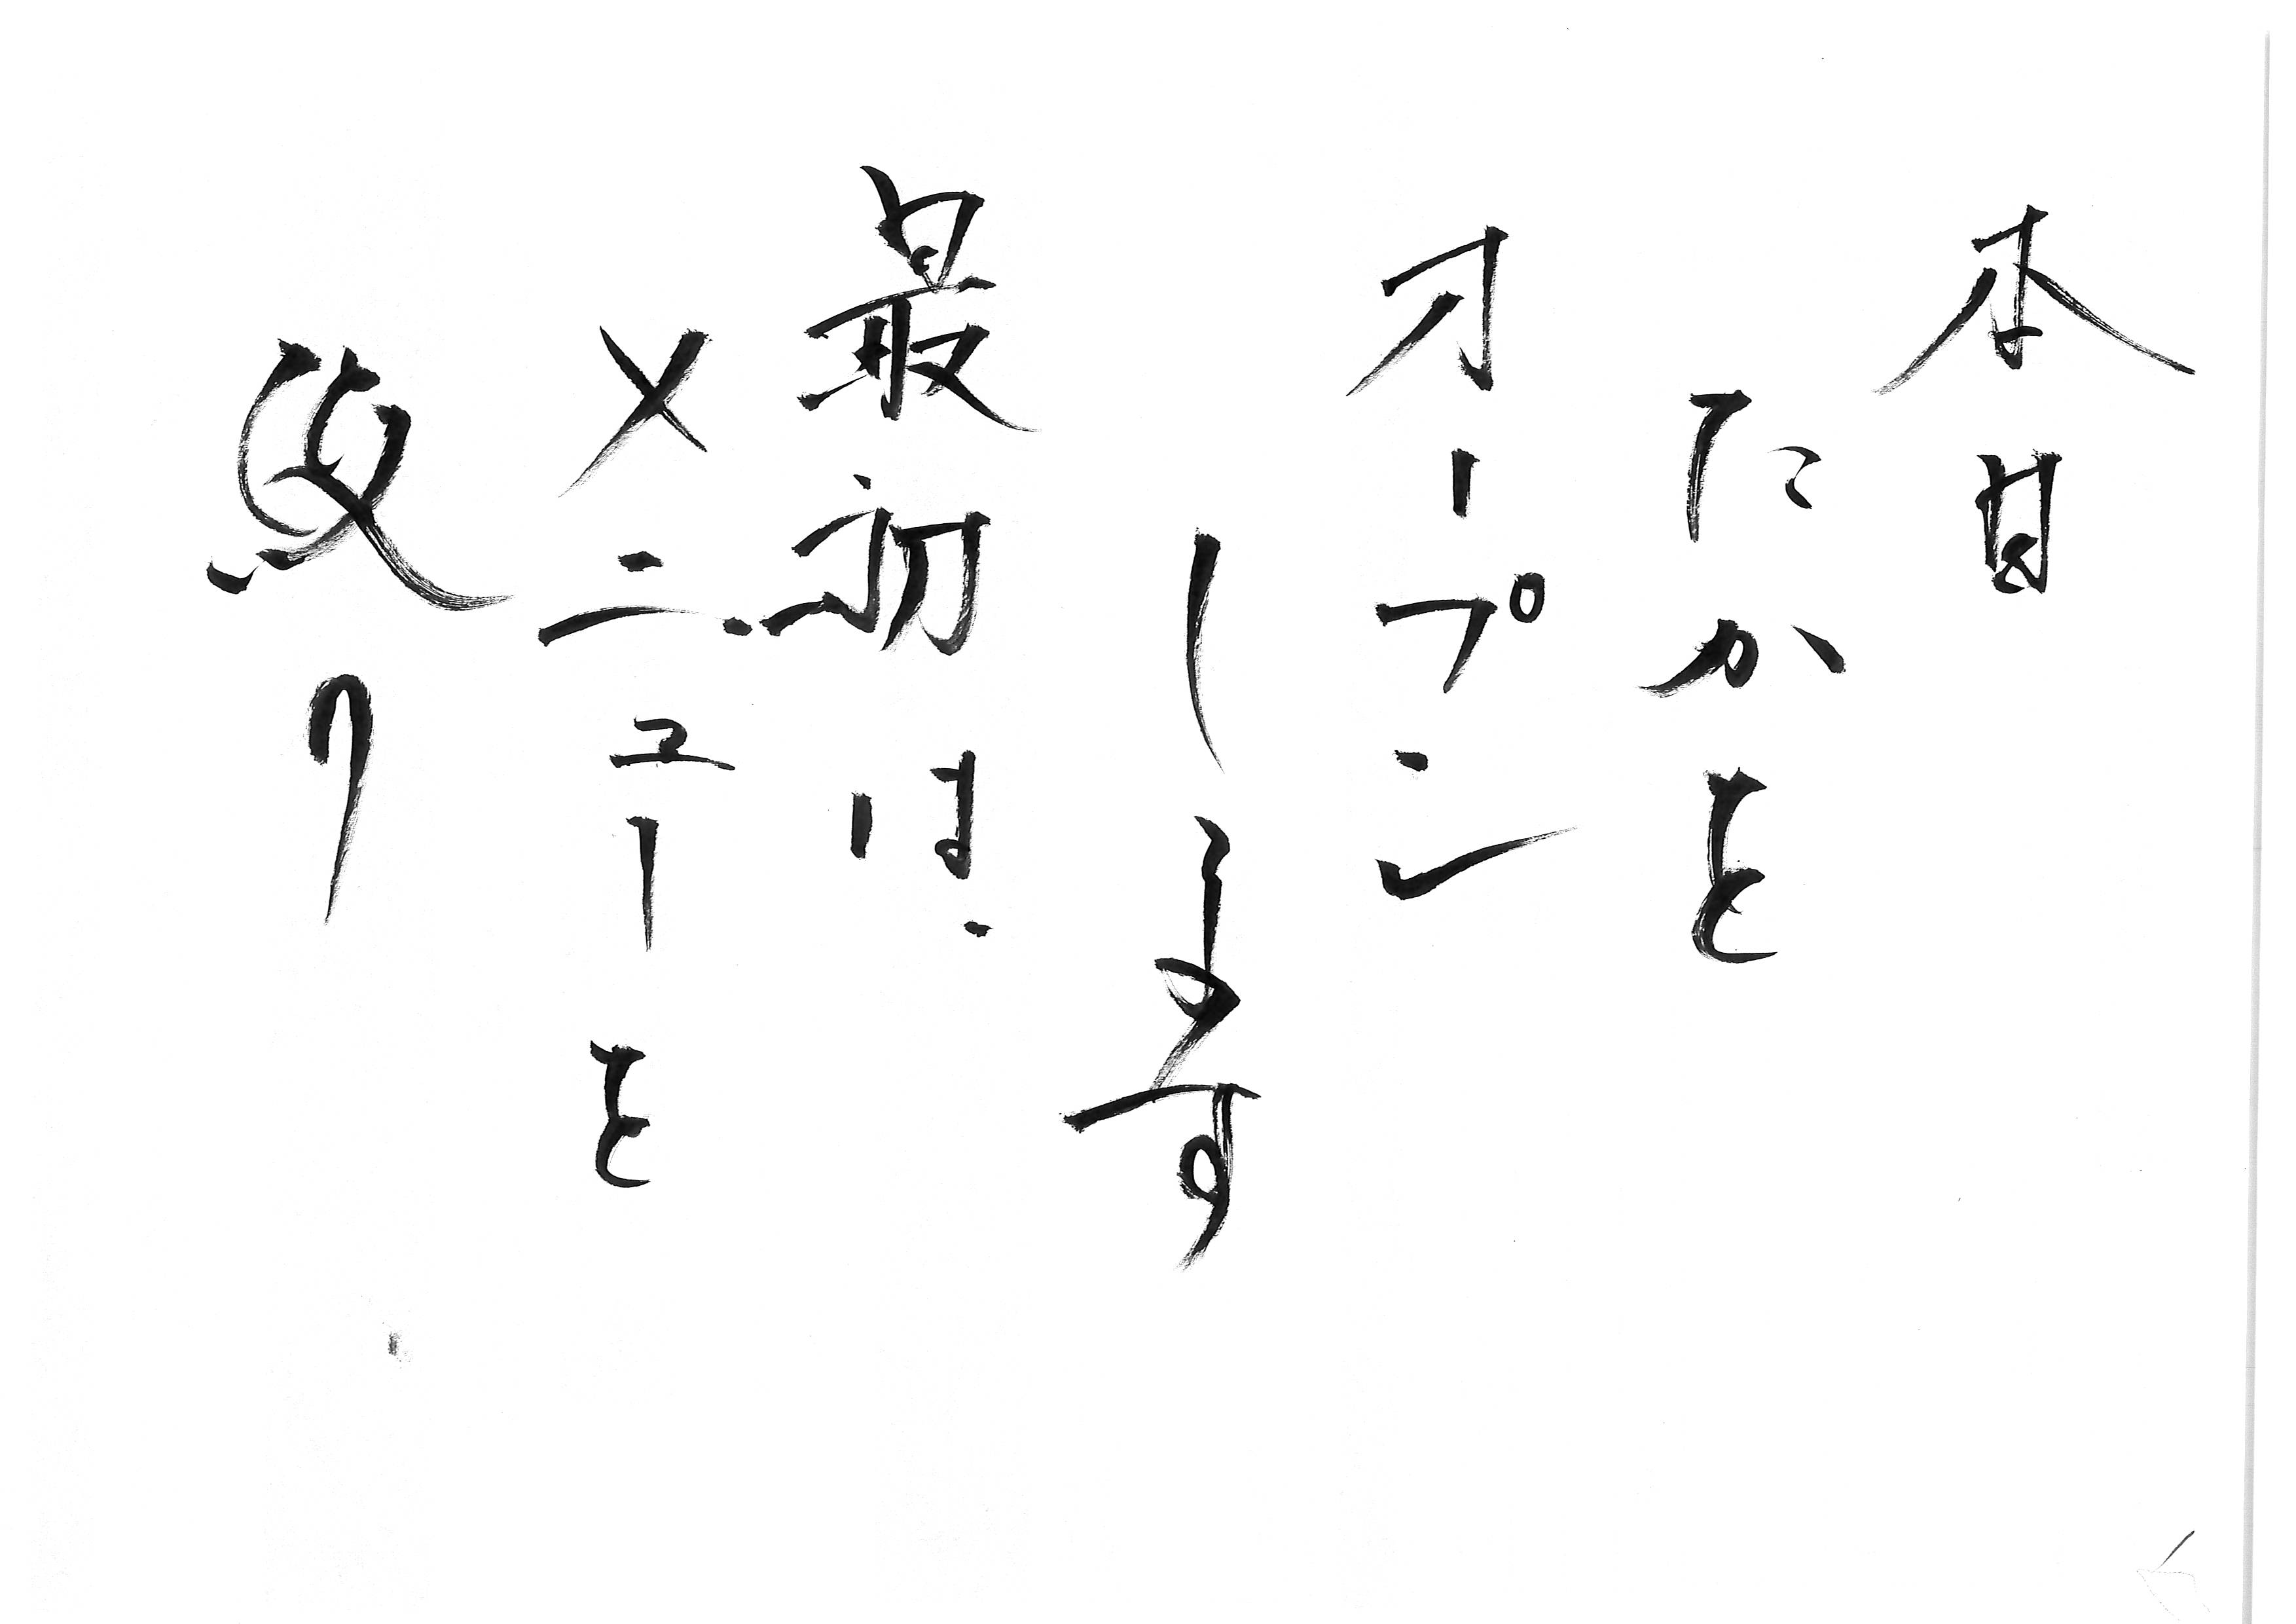 本日
たかを
オープン
します
最初は、
メニューを
絞り